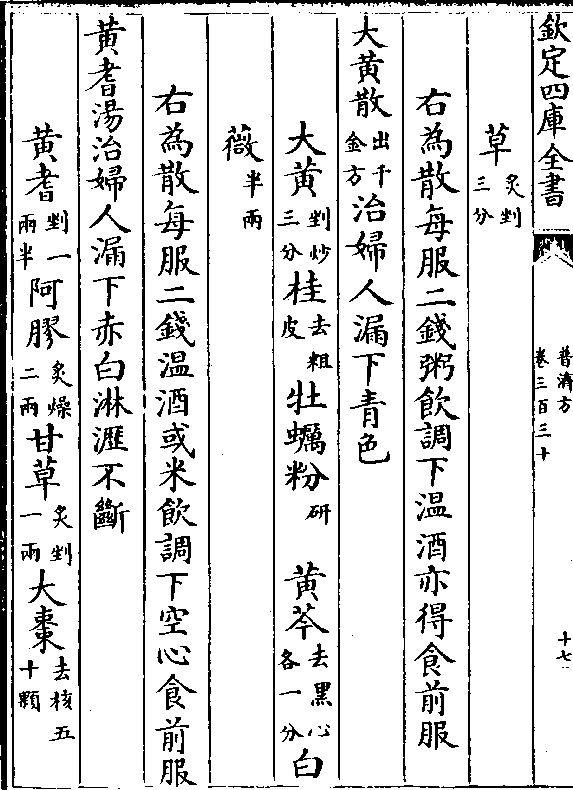 欽定四庫全書
普濟方
卷三百三十
十七
草炙剉三分
右為散每服二錢粥飲調下温酒亦得食前服
大黄散出千金方治婦人漏下青色
大黄剉炒三分桂去粗皮牡蠣粉研黄芩去黑心各一分白
薇半兩
右為散每服二錢温酒或米飲調下空心食前服
黄耆湯治婦人漏下赤白淋瀝不斷
黄耆剉一兩半阿膠炙燥二兩甘草炙剉一兩大棗去核五十顆